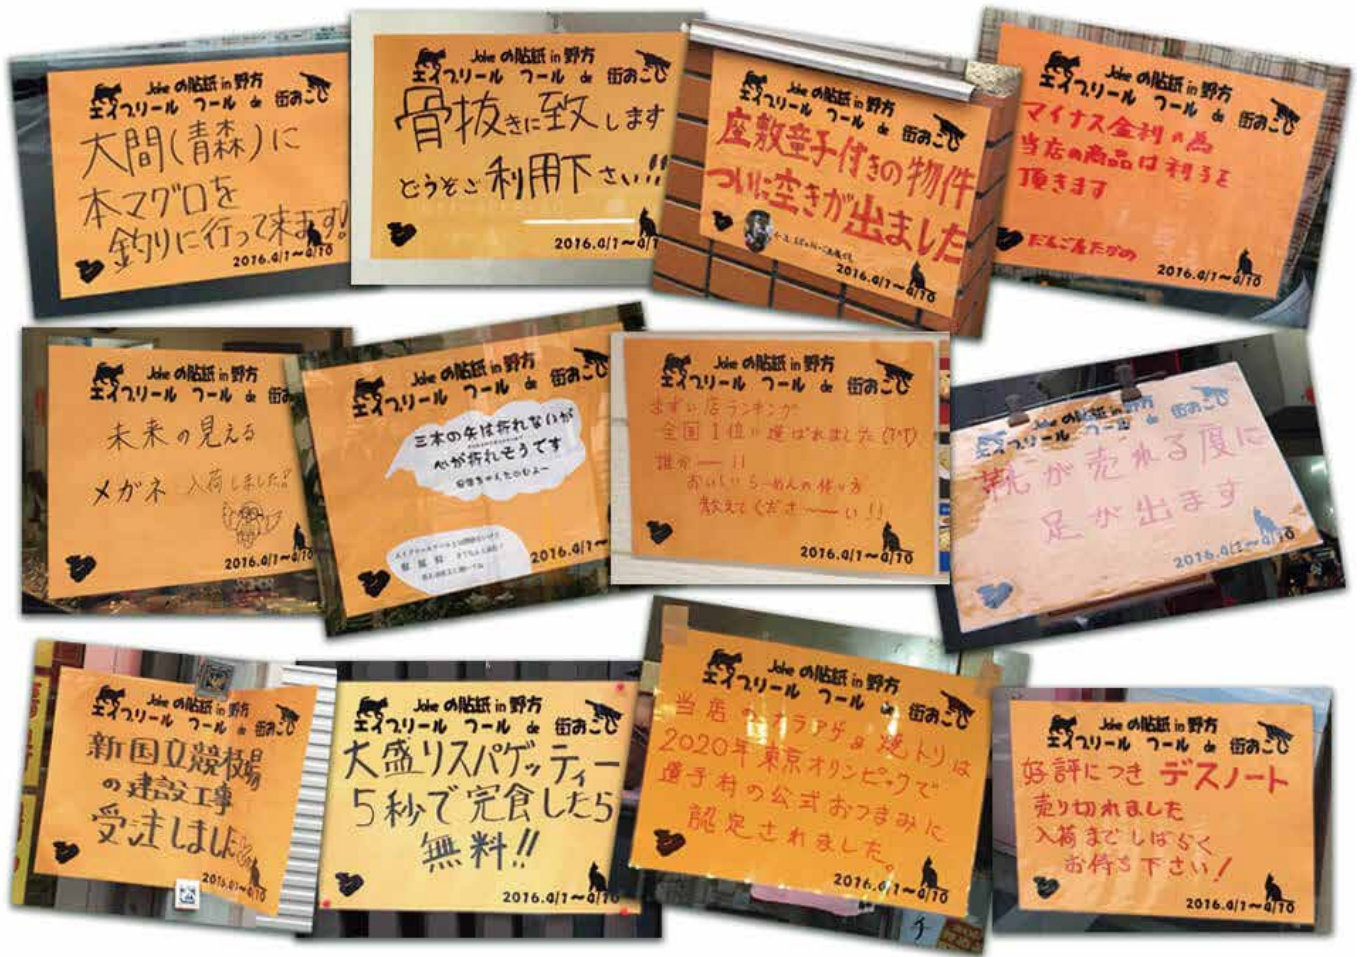 Jokeの貼紙in野方
エイプリール フール de 街おこし
大間(青森)に
本マグロを
釣りに行って来ます!
2016.4/1〜4/10
Jokeの貼紙in野方
エイプリール フール de 街おこし
骨抜きに致します
どうぞご利用下さい!!
2016.4/1〜4/1
Jokeの貼紙in野方
エイプリール フール de 街おこし
座敷童子付きの物件
ついに空きが出ました
2016.4/1〜4/10
Jokeの貼紙in野方
エイプリール フール de 街おこし
マイナス金利の為
当店の商品は利子を
頂きます
だんご屋たかの
2016.4/1〜4/10
Jokeの貼紙in野方
エイプリール フール de 街お
未来の見える
メガネ 入荷しました?
2016.4/1〜4/10
Jokeの貼紙in野方
エイプリール フール de 街おこし
三本の矢は折れないが
心が折れそうです
2016.4/1〜
Jokeの貼紙in野方
エイプリール フール de 街おこし
まずい店ランキング
全国1位に選ばれました(T^T)
誰かーー!!
おいしいらーめんの作り方
教えてくださ〜〜い!!
2016.4/1〜4/10
Jokeの貼紙in野方
エイプリール フール de 街おこし
靴が売れる度に
足が出ます
2016.4/1〜4/10
Jokeの貼紙in野方
エイプリール フール de 街おこし
新国立競技場
の建設工事
受注しました
2016.4/1〜4/10
Jokeの貼紙in野方
エイプリール フール de 街おこし
大盛りスパゲッティー
5秒で完食したら
無料!!
2016.4/1〜4/10
Jokeの貼紙in野方
エイプリール フール de 街おこし
当店のカラアゲ&焼トリは
2020年東京オリンピックで
選手村の公式おつまみに
認定されました。
2016.4/1〜4/10
チ
Jokeの貼紙in野方
エイプリール フール de 街おこし
好評につき デスノート
売り切れました
入荷までしばらく
お待ち下さい!
2016.4/1〜4/10